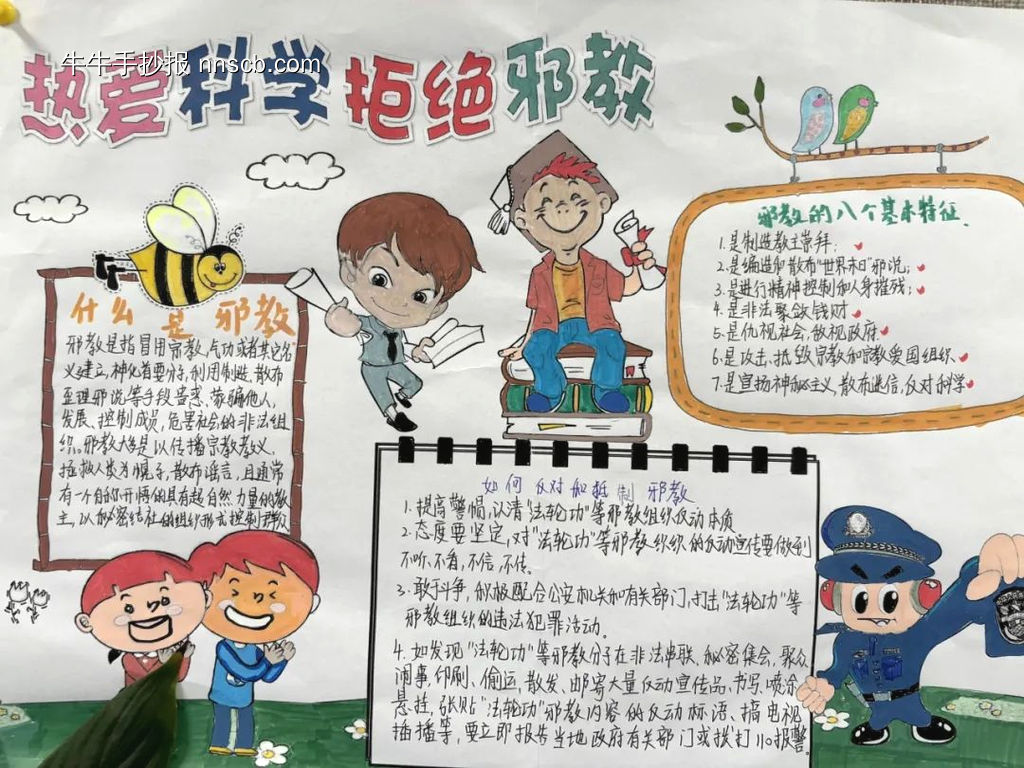 牛牛手抄报 nnscb.com
热爱科学 拒绝邪教
什么是邪教
邪教是指冒用宗教,气功或者其它名
义建立,神化首要分子,利用制造、散布
歪理邪说等手段蛊惑、蒙骗他人,
发展、控制成员,危害社会的非法组
织。邪教大多是以传播宗教教义、
拯救人类为幌子,散布谣言,且通常
有一个自称开悟的具有超自然力量的教
主,以秘密结社的组织形式控制群众
邪教的八个基本特征.
1.是制造教主崇拜;
2.是编造和散布“世界末日”邪说;
3.是进行精神控制和人身摧残;
4.是非法聚敛钱财
5.是仇视社会,敌视政府
6.是攻击,诋毁宗教和宗教爱国组织、
7.是宣扬神秘主义,散布迷信,反对科学
如何反对和抵制邪教
1.提高警惕,认清“法轮功”等邪教组织反动本质
2.态度要坚定,对“法轮功”等邪教组织的反动宣传要做到
不听、不看,不信,不传。
3.敢于斗争,积极配合公安机关和有关部门,打击“法轮功”等
邪教组织的违法犯罪活动.
4.如发现“法轮功”等邪教分子在非法串联、秘密集会,聚众
闹事、印刷、偷运,散发、邮寄大量反动宣传品、书写、喷涂
悬挂、张贴“法轮功”邪教内容的反动标语、搞电视
插播等,要立即报告当地政府有关部门或拨打110报警。